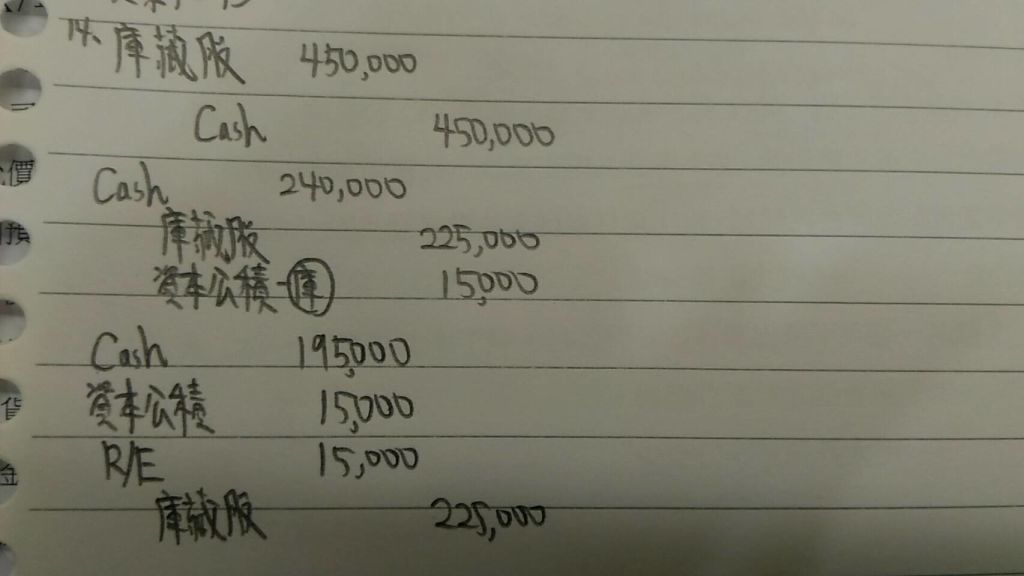 14、庫藏股 450,000
Cash 450,000
Cash 240,000
庫藏股 225,000
資本公積-庫 15,000
Cash 195,000
資本公積 15,000
R/E 15,000
庫藏股 225,000
價
預
金